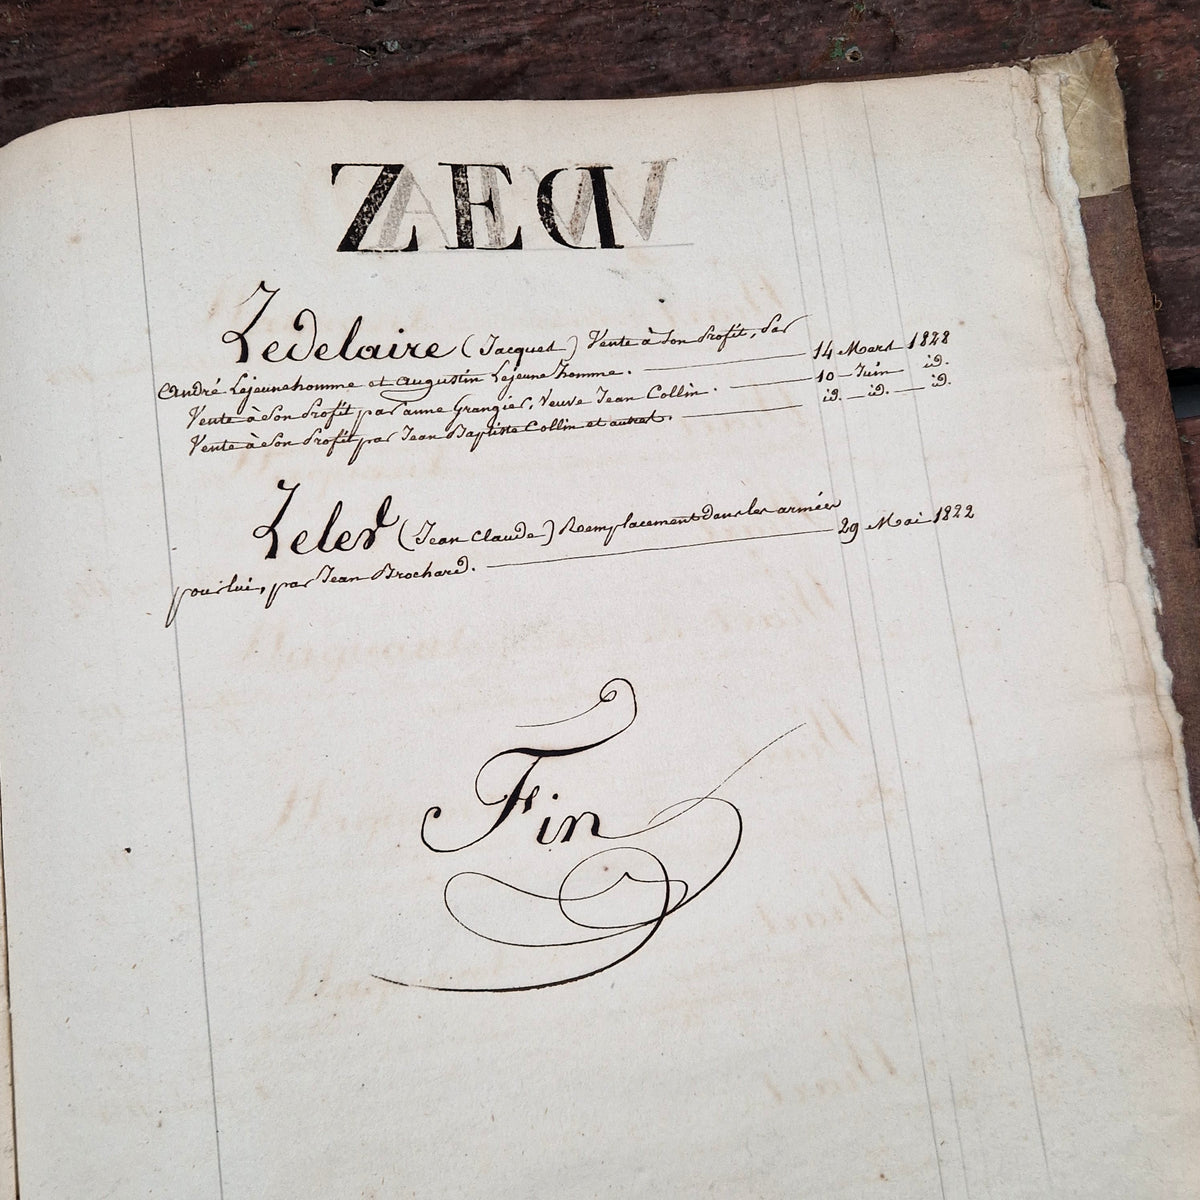 ZED
Zedelaire (Jacques) Vente à Son Profit, par
André Lejeunehomme et Augustin Lejeune homme. 14 Mars 1828
Vente à Son Profit par anne Grangier, Veuve Jean Collin. 10 Juin id.
Vente à Son Profit par Jean Baptiste Collin et autres. id. id. id.
Zeler (Jean Claude) Remplacement dans les armées
pour lui, par Jean Brochard. 29 Mai 1822
Fin